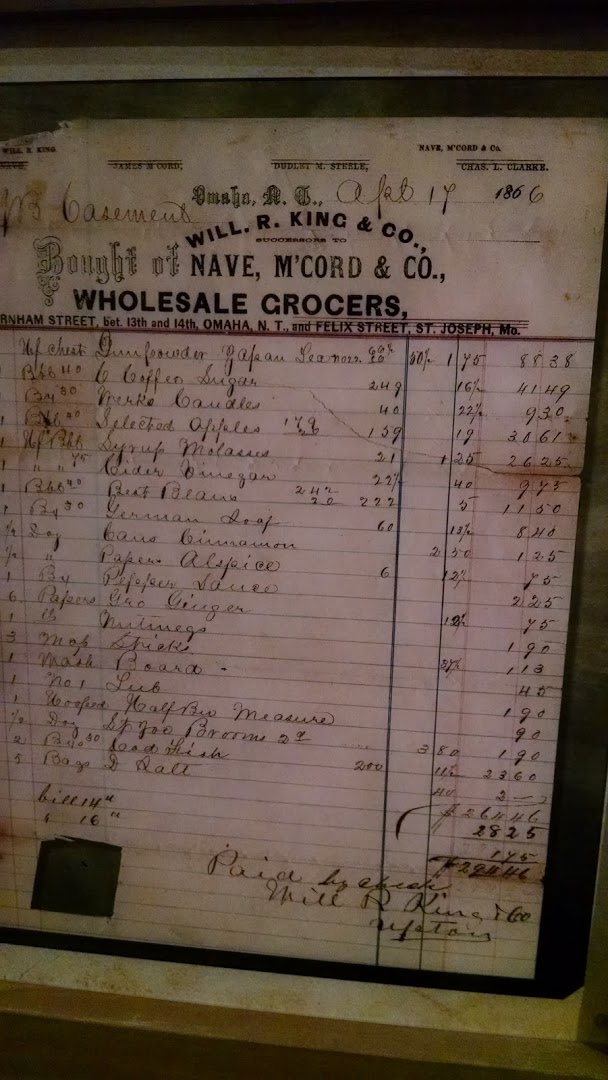 WILL. R. KING NAVE, M'CORD & Co.
NAVE, JAMES M'CORD, DUDLEY M. STEELE, CHAS. L. CLARKE.
Omaha, N. T., Apl 17 1866
Casement
WILL. R. KING & CO.,
SUCCESSORS TO
Bought of NAVE, M'CORD & CO.,
WHOLESALE GROCERS,
RNHAM STREET, bet. 13th and 14th, OMAHA, N. T., and FELIX STREET, ST. JOSEPH, Mo.
Hf Chest Gunpowder Japan Tea 1 75 88 38
1 Bbl C Coffee Sugar 249 16½ 41 49
1 Bx Candles 40 22½ 9 30
1 Bbl Selected Apples 159 19 30 61
1 Hf Bbl Syrup Molasses 21 1 25 26 25
1 " " Cider Vinegar 22½ 40 9 75
1 Bbl Best Beans 222 5 11 50
1 Bx German Soap 60 13½ 8 40
½ Doz Cans Cinnamon 2 50 1 25
½ " Papers Alspice 6 12½ 75
1 Bx Pepper Sauce 2 25
6 Papers Gro Ginger 12½ 75
1 lb Nutmegs 1 90
3 Mop Sticks 37½ 1 13
1 Wash Board 45
1 No 1 Tub 1 90
1 Hooped Half Bu Measure 90
½ Doz Brooms 3 80 1 90
2 Bxs Cod Fish 200 11½ 23 60
5 Bags D Salt 40 2 —
$ 264 46
bill 14" 28 25
" 16" 1 75
$ 294 46
Paid by check
Will R King & Co